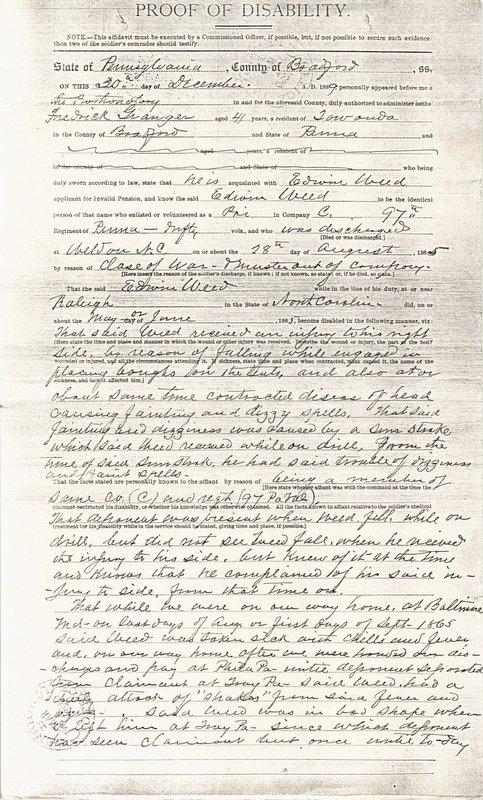 PROOF OF DISABILITY.
NOTE.—This affidavit must be executed by a Commissioned Officer, if possible, but, if not possible to secure such evidence
then two of the soldier's comrades should testify.
State of Pennsylvania, County of Bradford, ss,
ON THIS 30th day of December A. D. 1889 personally appeared before me a
the Prothonotary in and for the aforesaid County, duly authorized to administer oaths
Fredrick Granger aged 41 years, a resident of Towanda
in the County of Bradford and State of Penna and
aged years, a resident of
in the county of and State of who being
duly sworn according to law, state that he is acquainted with Edwin Weed
applicant for Invalid Pension, and know the said Edwin Weed to be the identical
person of that name who enlisted or volunteered as a Pri in Company C. 97th
Regiment of Penna - Infty vols., and who was discharged
[Died or was discharged.]
at Weldon N.C on or about the 28th day of August, 1865
by reason of Close of War - & Muster out of company.
[Here insert the reason of the soldier's discharge, if known; if not known, so state; or, if he died, so state.]
That the said Edwin Weed while in the line of his duty, at or near
Raleigh in the State of North Carolina did, on or
about the May or June 1865, become disabled in the following manner, viz:
That said Weed recieved an injury to his right
[Here state the time and place and manner in which the wound or other injury was received. Describe the wound or injury, the part of the body
side, by reason of falling while engaged in
wounded or injured, and all the circumstances attending it. If sickness, state time and place when contracted, what caused it, the name of the
placing boughs on the tents, and also at or
sickness, and how it affected him.]
about same time contracted diseas of head
causing fainting and dizzy spells. That said
fainting and dizziness was caused by a sun stroke,
which said Weed received while on drill, from the
time of said Sun Stroke, he had said trouble of dizziness
and faint spells.
That the facts stated are personally known to the affiant by reason of being a member of
[Here state whether affiant was with the command at the time the
same Co. (C) and regt (97 Pa Vol)
claimant contracted his disability, or whether his knowledge was otherwise obtained. All the facts known to affiant relative to the soldier's medical
That deponent was present when Weed fell, while on
treatment for his disability while in the service should be stated, giving time and place, if possible.]
drill, but did not see Weed fall, when he received
the injury to his side, but knew of it at the time
and knows that he complained of his said in-
-jury to side, from that time on.
That while we were on our way home, at Baltimore
Md - on last days of Aug. or first days of Sept- 1865
said Weed was taken sick with chills and fever
and, on our way home after we were our dis-
-charge and pay at Phila Pa - until deponent seperated
from claimant at Troy Pa - said Weed, had a
attack of "Shakes" from said fever and
Said Weed was in bad shape when
left him at Troy Pa - since which deponent
has seen claimant but once until to-day